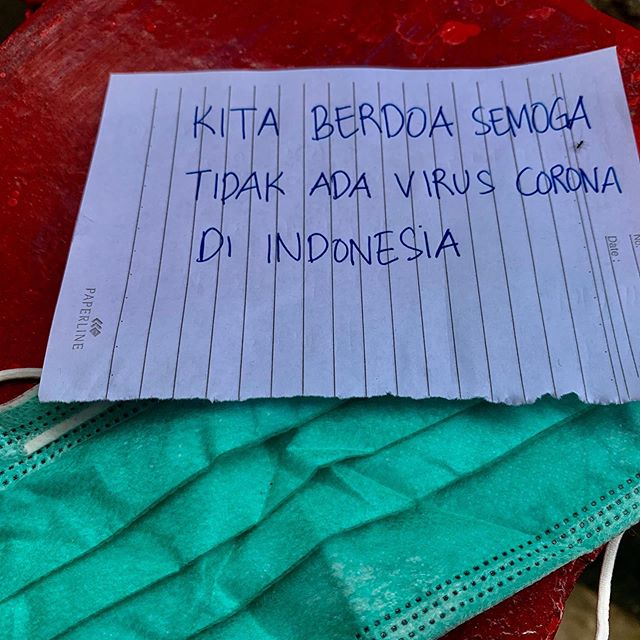 KITA BERDOA SEMOGA
TIDAK ADA VIRUS CORONA
DI INDONESIA
PAPERLINE
No
Date :